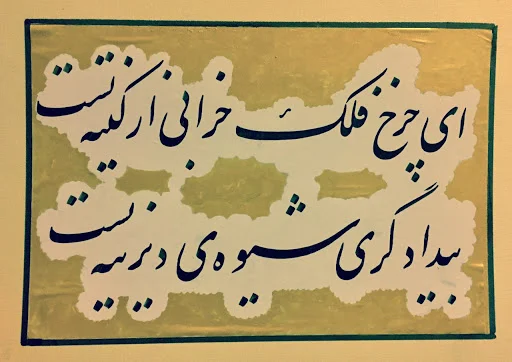 ای چرخ فلک خرابی از کینه تست
بیدادگری شیوه‌ی دیرینه تست